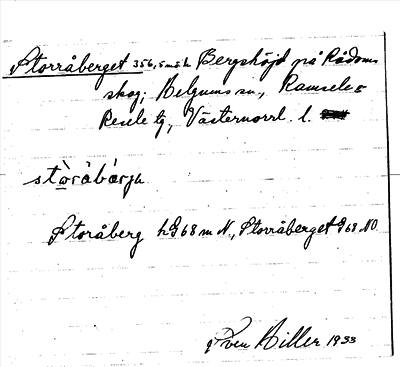 Storråberget 356,5 m ö h Bergshöjd på Rådoms
skog; Helgums sn., Ramsele o
Resele tg, Västernorrl. l.
stòråbǽrjə
Storåberg hG 68 m N., Storråberget G 68 NO
Sven Hiller 1933